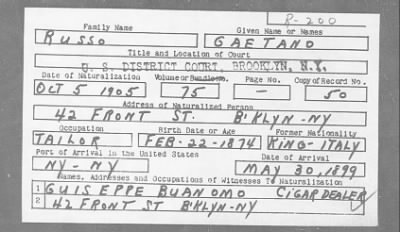 R-200
Family Name Given Name or Names
RUSSO GAETANO
Title and Location of Court
U. S. DISTRICT COURT, BROOKLYN, N.Y.
Date of Naturalization Volume or Bundle No. Page No. Copy of Record No.
OCT 5 1905 75 — 50
Address of Naturalized Person
42 FRONT ST. B'KLYN-NY
Occupation Birth Date or Age Former Nationality
TAILOR FEB-22-1874 KING-ITALY
Port of Arrival in the United States Date of Arrival
NY-NY MAY 30, 1899
Names, Addresses and Occupations of Witnesses To Naturalization
1 GUISEPPE BUANOMO CIGAR DEALER
2 42 FRONT ST B'KLYN-NY